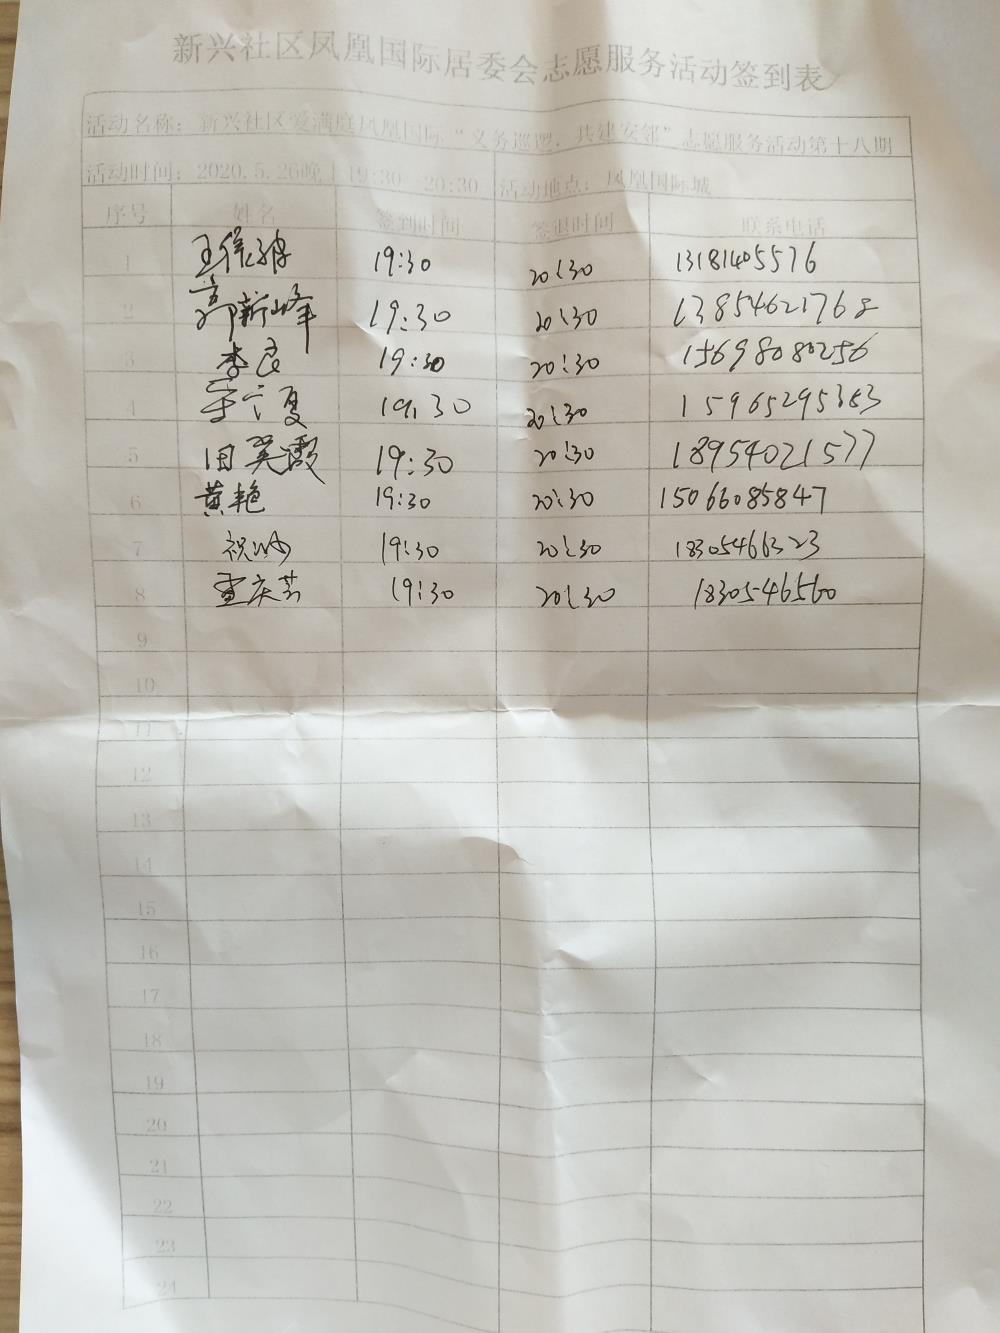 新兴社区凤凰国际居委会志愿服务活动签到表
活动名称：新兴社区爱满庭凤凰国际“义务巡逻，共建安邻”志愿服务活动第十八期
活动时间：2020.5.26晚上19:30--20:30 活动地点：凤凰国际城
序号 姓名 签到时间 签退时间 联系电话
1 19:30 20:30 13181405576
2 郭新峰 19:30 20:30 13854621768
3 李良 19:30 20:30 15698080256
4 19:30 20:30 15965295383
5 田翠霞 19:30 20:30 18954021577
6 黄艳 19:30 20:30 15066085847
7 祝 19:30 20:30 18305466323
8 董庆芸 19:30 20:30 1830546560
9
10
11
12
13
14
15
16
17
18
19
20
21
22
23
24